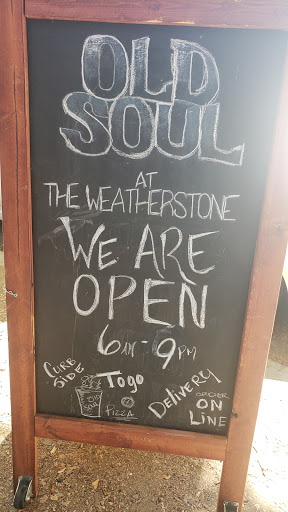 OLD
SOUL
AT
THE WEATHERSTONE
WE ARE
OPEN
6AM - 9PM
CURB
SIDE
TOGO
OLD
SOUL
PIZZA
DELIVERY
ORDER
ON
LINE